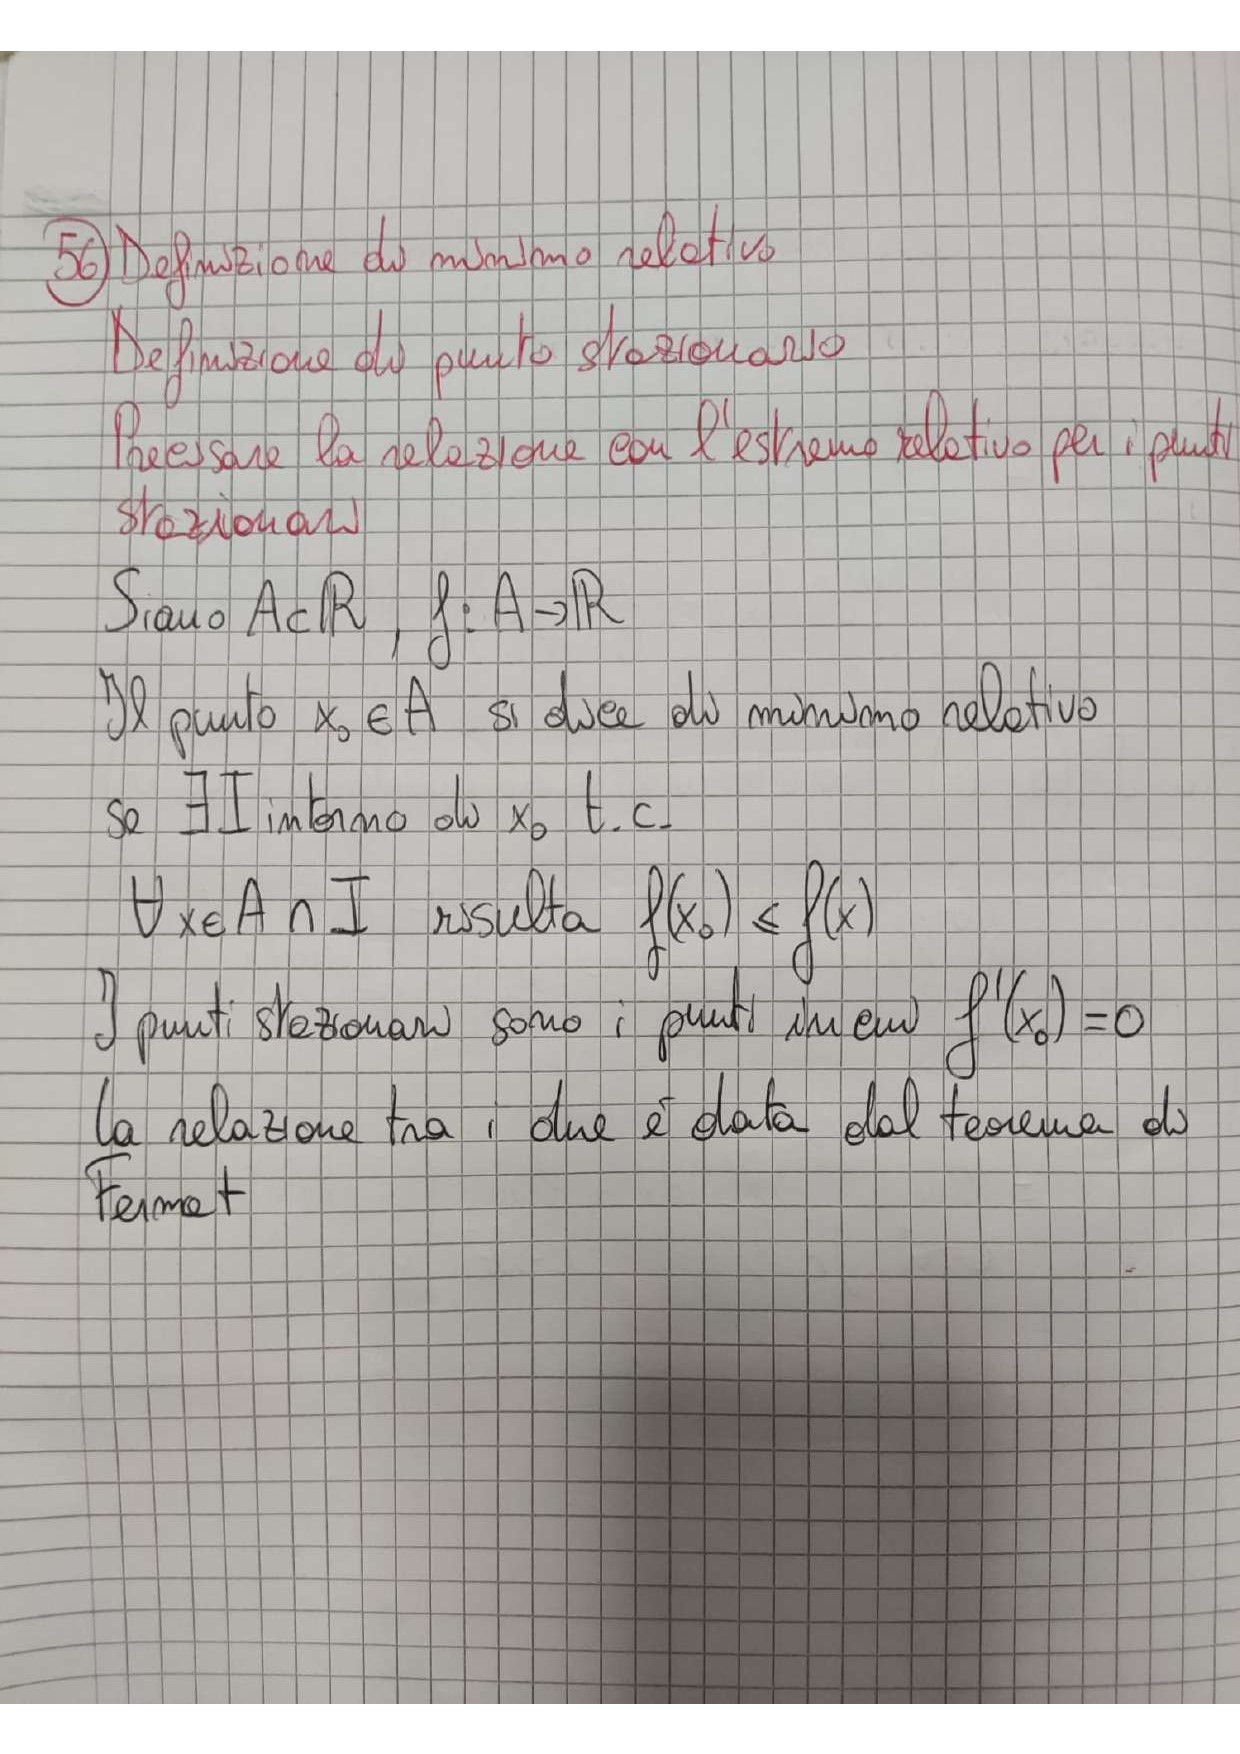 56) Definizione di minimo relativo
Definizione di punto stazionario
Precisare la relazione con l'estremo relativo per i punti
stazionari
Siano A⊂ℝ, f: A→ℝ
Il punto x₀ ∈ A si dice di minimo relativo
se ∃ I intorno di x₀ t.c.
∀ x∈A ∩ I risulta f(x₀) ≤ f(x)
I punti stazionari sono i punti in cui f'(x₀)=0
la relazione tra i due è data dal teorema di
Fermat